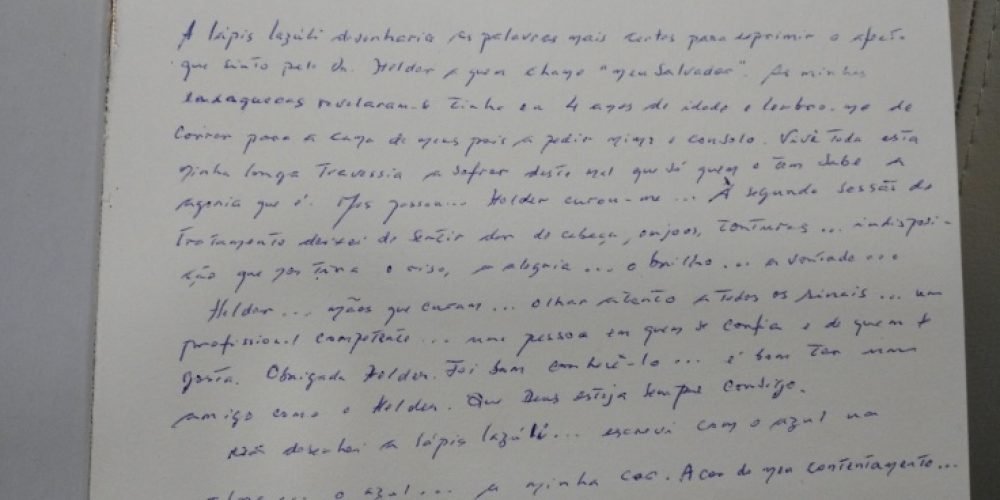 A lápis lazúli desenharia as palavras mais certas para exprimir o afeto
que sinto pelo Dr. Helder a quem chamo "meu Salvador". As minhas
enxaquecas revelaram-se tinha eu 4 anos de idade e lembro-me de
correr para a cama de meus pais a pedir mimo e consolo. Vivi toda esta
minha longa travessia a sofrer deste mal que só quem o tem sabe a
agonia que é. Mas passou... Helder curou-me... À segunda sessão de
tratamento deixei de sentir dor de cabeça, enjoos, tonturas... indisposi-
ção que nos tira o riso, a alegria... o brilho... a vontade...
Helder... mãos que curam... olhar atento a todos os sinais... um
profissional competente... uma pessoa em quem se confia e de quem se
gosta. Obrigada Helder. Foi bom conhecê-lo... é bom ter um
amigo como o Helder. Que Deus esteja sempre consigo.
Não desenhei a lápis lazúli... escrevi com o azul na
... o azul... a minha cor. A cor do meu contentamento...